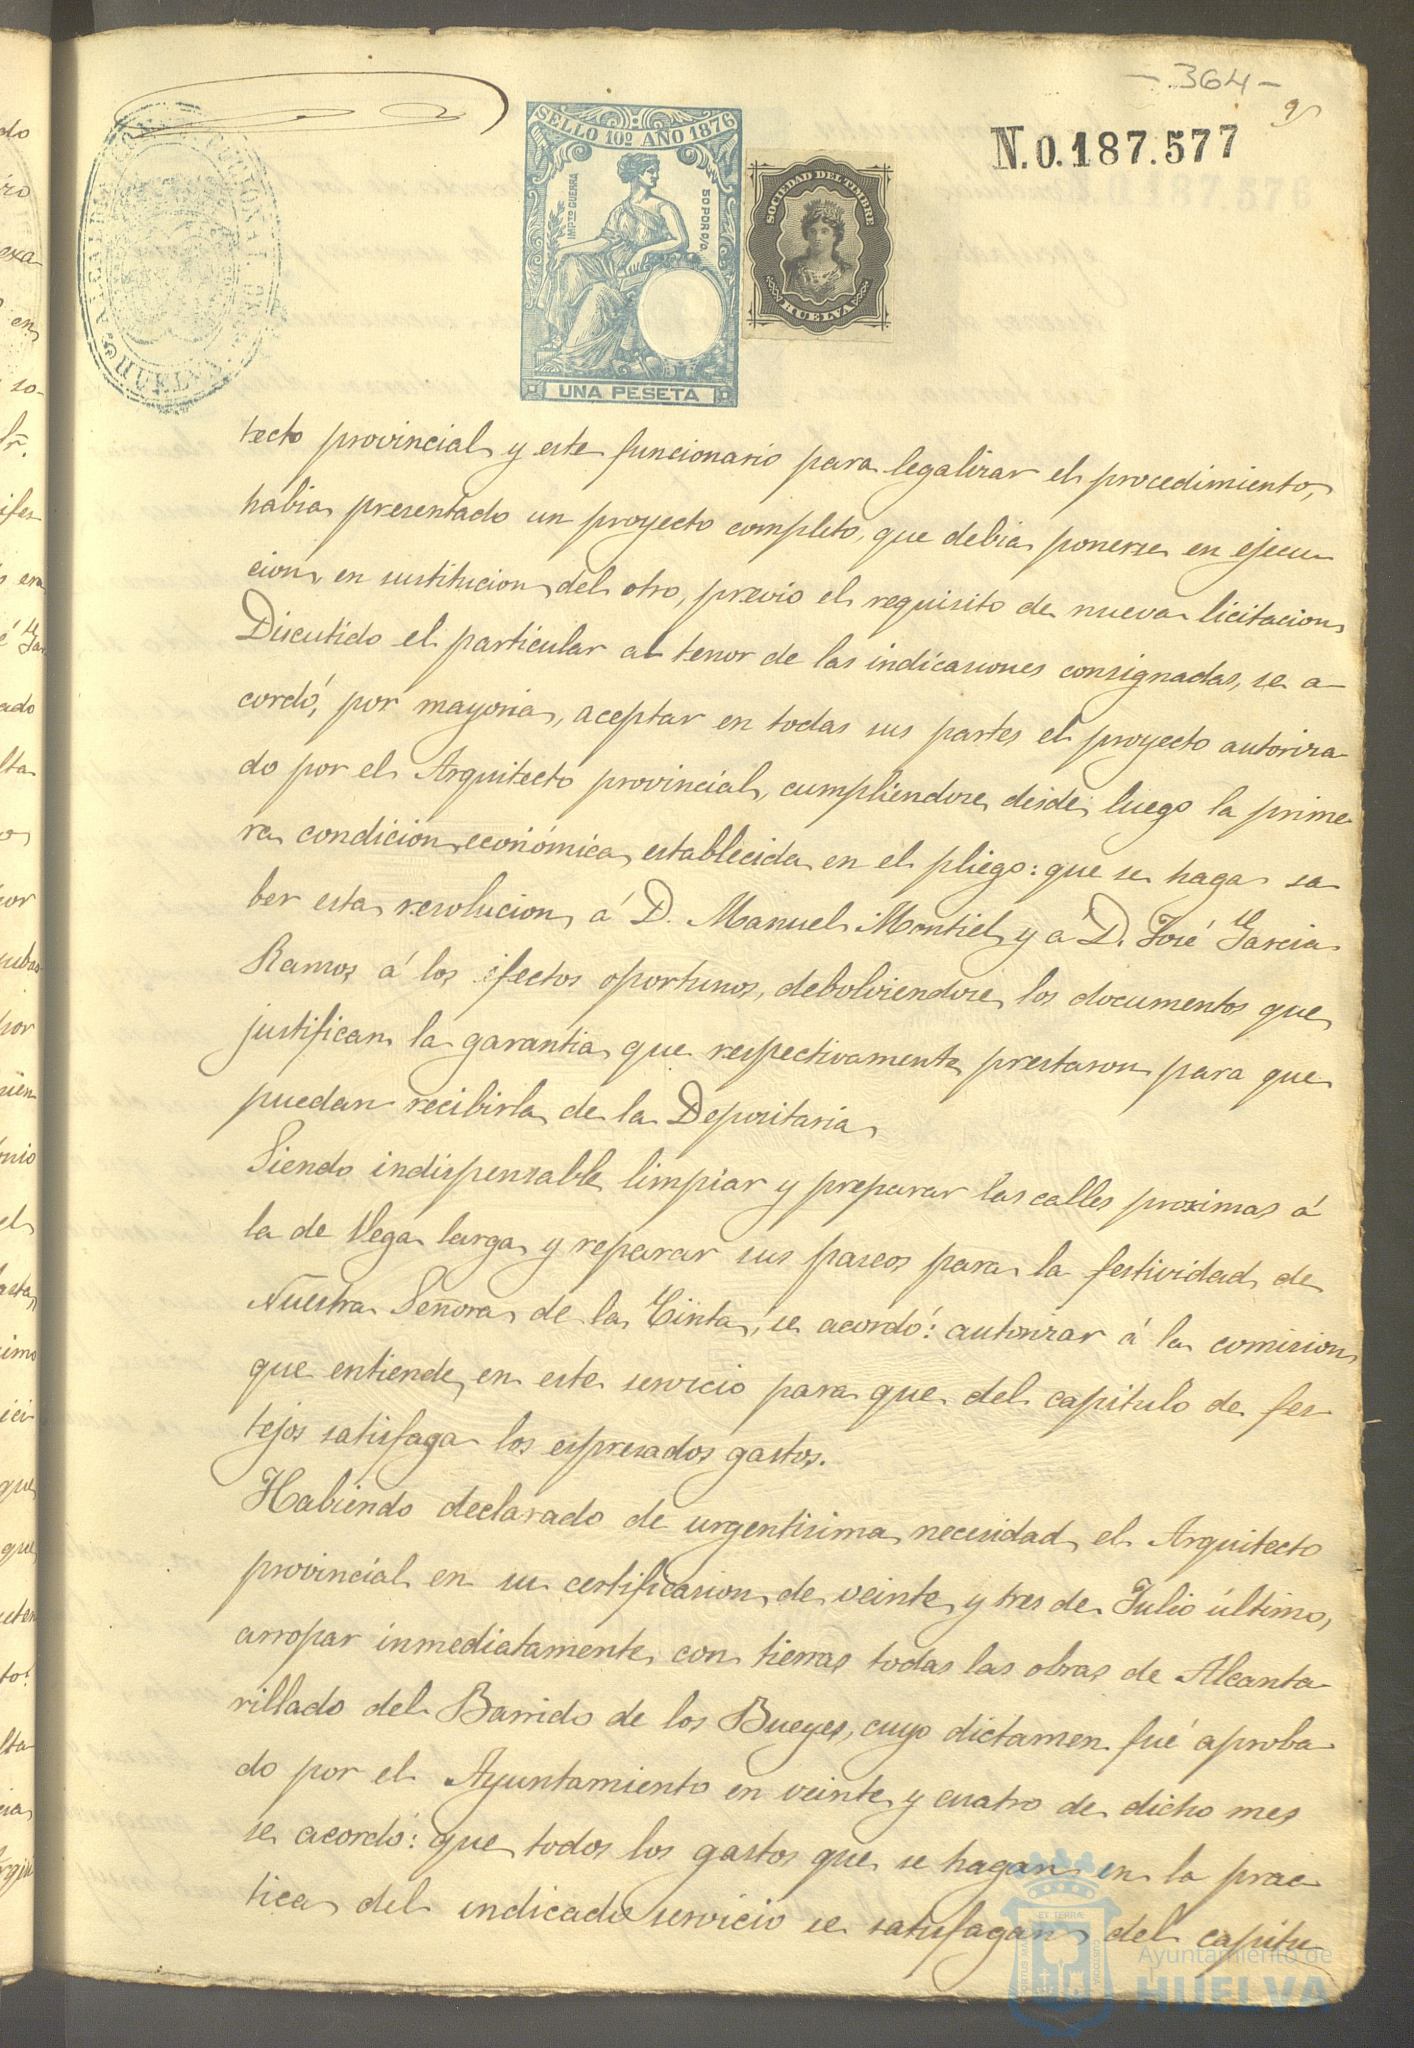 - 364 -
N.0.187.577
SELLO 10º AÑO 1876
IMPTO GUERRA
50 POR 0/0
UNA PESETA
SOCIEDAD DEL TIMBRE
HUELVA
HUELVA
tecto provincial y este funcionario para legalizar el procedimiento,
habia presentado un proyecto completo, que debia ponerse en ejecu
cion en sustitucion del otro, previo el requisito de nueva licitacion
Discutido el particular al tenor de las indicaciones consignadas, se a-
cordó, por mayoria, aceptar en todas sus partes el proyecto autoriza-
do por el Arquitecto provincial, cumpliendose desde luego la prime-
ra condicion económica establecida en el pliego: que se haga sa
ber esta resolucion á D. Manuel Montiel y á D. José Garcia
Ramos á los efectos oportunos, debolviendose los documentos que
justifican la garantia que respectivamente prestaron para que
puedan recibirla de la Depositaria
Siendo indispensable limpiar y preparar las calles proximas á
la de Vega larga y reparar sus paseos para la festividad de
Nuestra Señora de la Cinta, se acordó: autorizar á la comision
que entiende en este servicio para que del capitulo de fes
tejos satisfaga los espresados gastos.
Habiendo declarado de urgentisima necesidad el Arquitecto
provincial en su certificacion de veinte y tres de Julio último,
arropar inmediatamente con tierras todas las obras de Alcanta-
rillado del Barrido de los Bueyes, cuyo dictamen fué aproba
do por el Ayuntamiento en veinte y cuatro de dicho mes
se acordó: que todos los gastos que se hagan en la prac
tica del indicado servicio se satisfagan del capitu
Ayuntamiento de
HUELVA